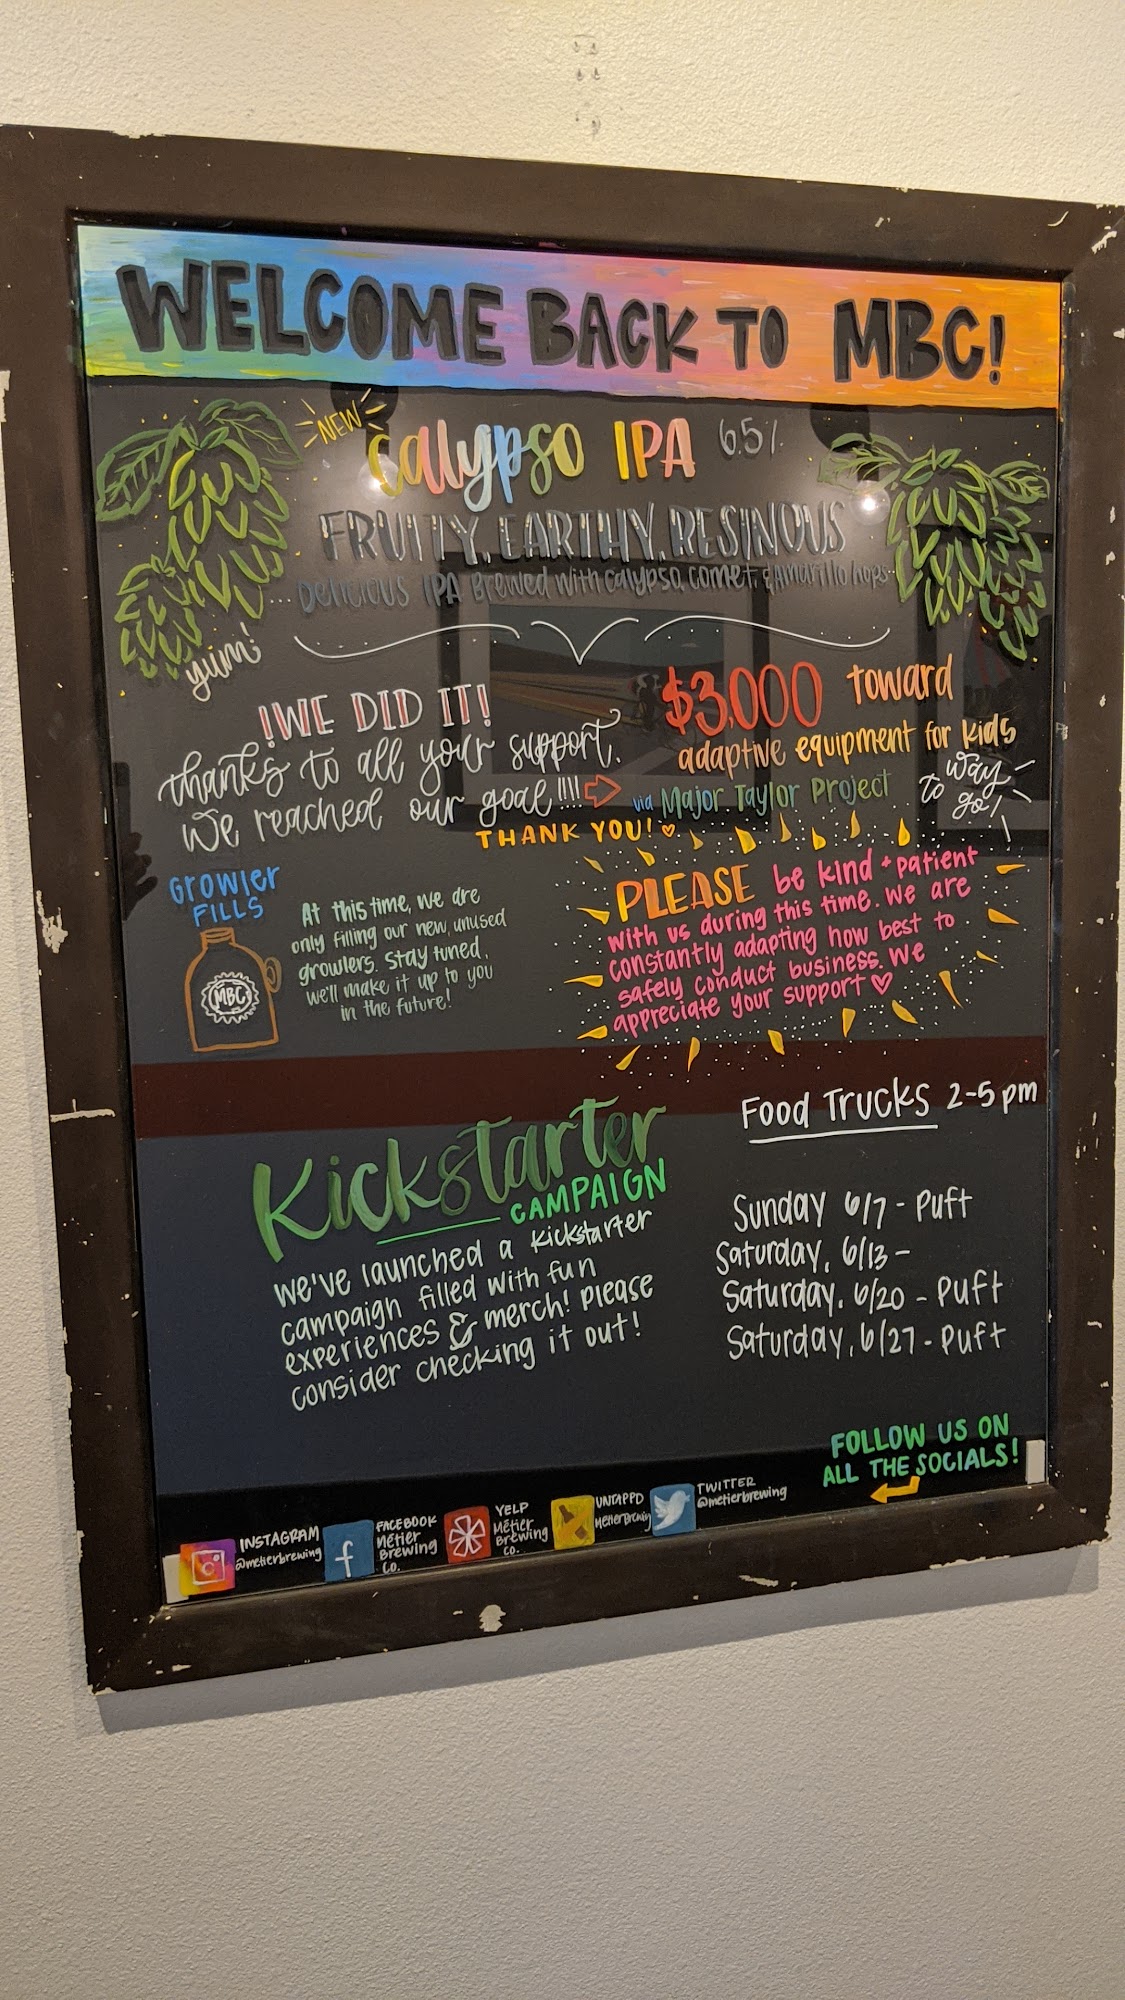 WELCOME BACK TO MBC!
NEW
Calypso IPA 6.5%
FRUITY, EARTHY, RESINOUS
...Delicious IPA Brewed with calypso, comet, & Amarillo hops...
yum!
!WE DID IT!
thanks to all your support.
We reached our goal!!!!
$3,000 toward
adaptive equipment for kids
via Major Taylor Project
way
to go!
THANK YOU!
Growler
FILLS
MBC
At this time, we are
only filling our new, unused
growlers. Stay tuned,
we'll make it up to you
in the future!
PLEASE be kind + patient
with us during this time. We are
constantly adapting how best to
safely conduct business. We
appreciate your support
Kickstarter
CAMPAIGN
we've launched a Kickstarter
campaign filled with fun
experiences & merch! Please
consider checking it out!
Food Trucks 2-5 pm
Sunday 6/7 - Puft
Saturday, 6/13 -
Saturday, 6/20 - Puft
Saturday, 6/27 - Puft
FOLLOW US ON
ALL THE SOCIALS!
INSTAGRAM
@metierbrewing
f
FACEBOOK
Métier
Brewing
Co.
YELP
Métier
Brewing
Co.
UNTAPPD
MetierBrewing
TWITTER
@metierbrewing